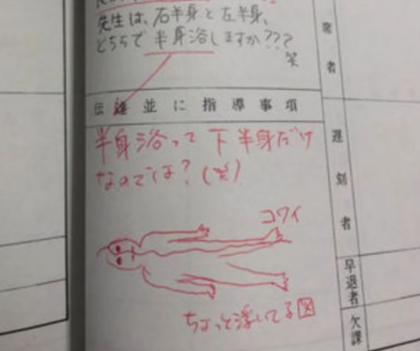 先生は、右半身と左半身、
どちらで半身浴しますか???
笑
伝達並に指導事項
半身浴って下半身だけ
なのでは?(笑)
コワイ
ちょっと浮いてる図
席者
遅刻者
早退者
欠課